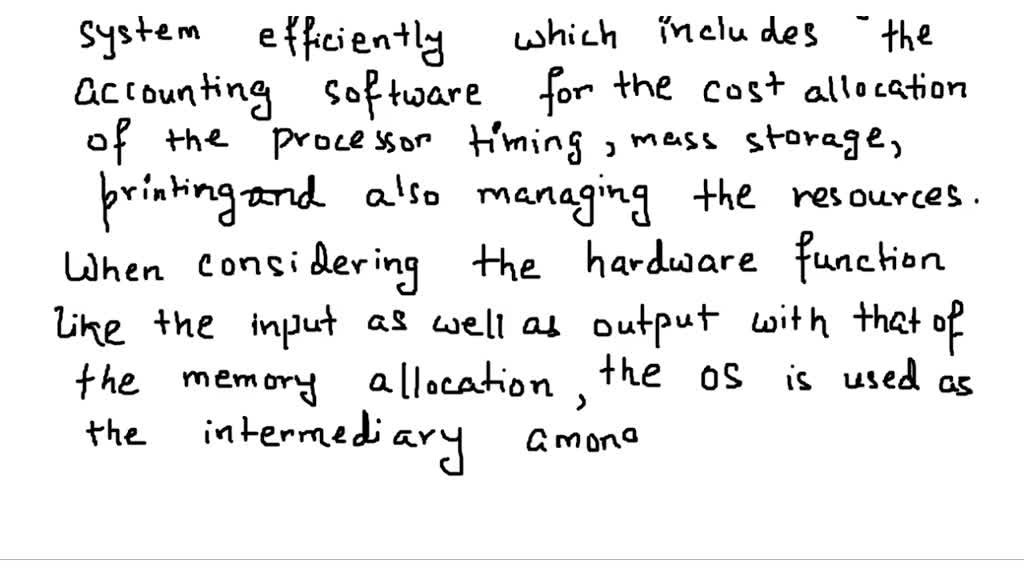 system efficiently which includes the
accounting software for the cost allocation
of the processor timing, mass storage,
printing and also managing the resources.
When considering the hardware function
like the input as well as output with that of
the memory allocation, the OS is used as
the intermediary amono